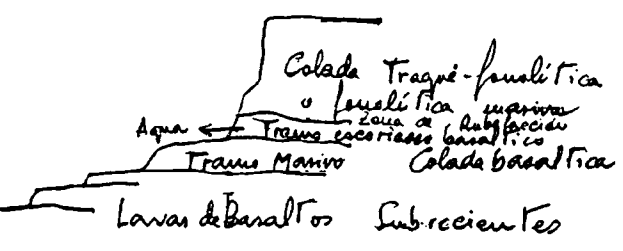 Colada Traqui-fonolítica
o fonolítica masiva
Zona de Rubefacción
Agua Tramo escoriaceo basaltico
Tramo Masivo Colada basaltica
Lavas de Basaltos Subrecientes